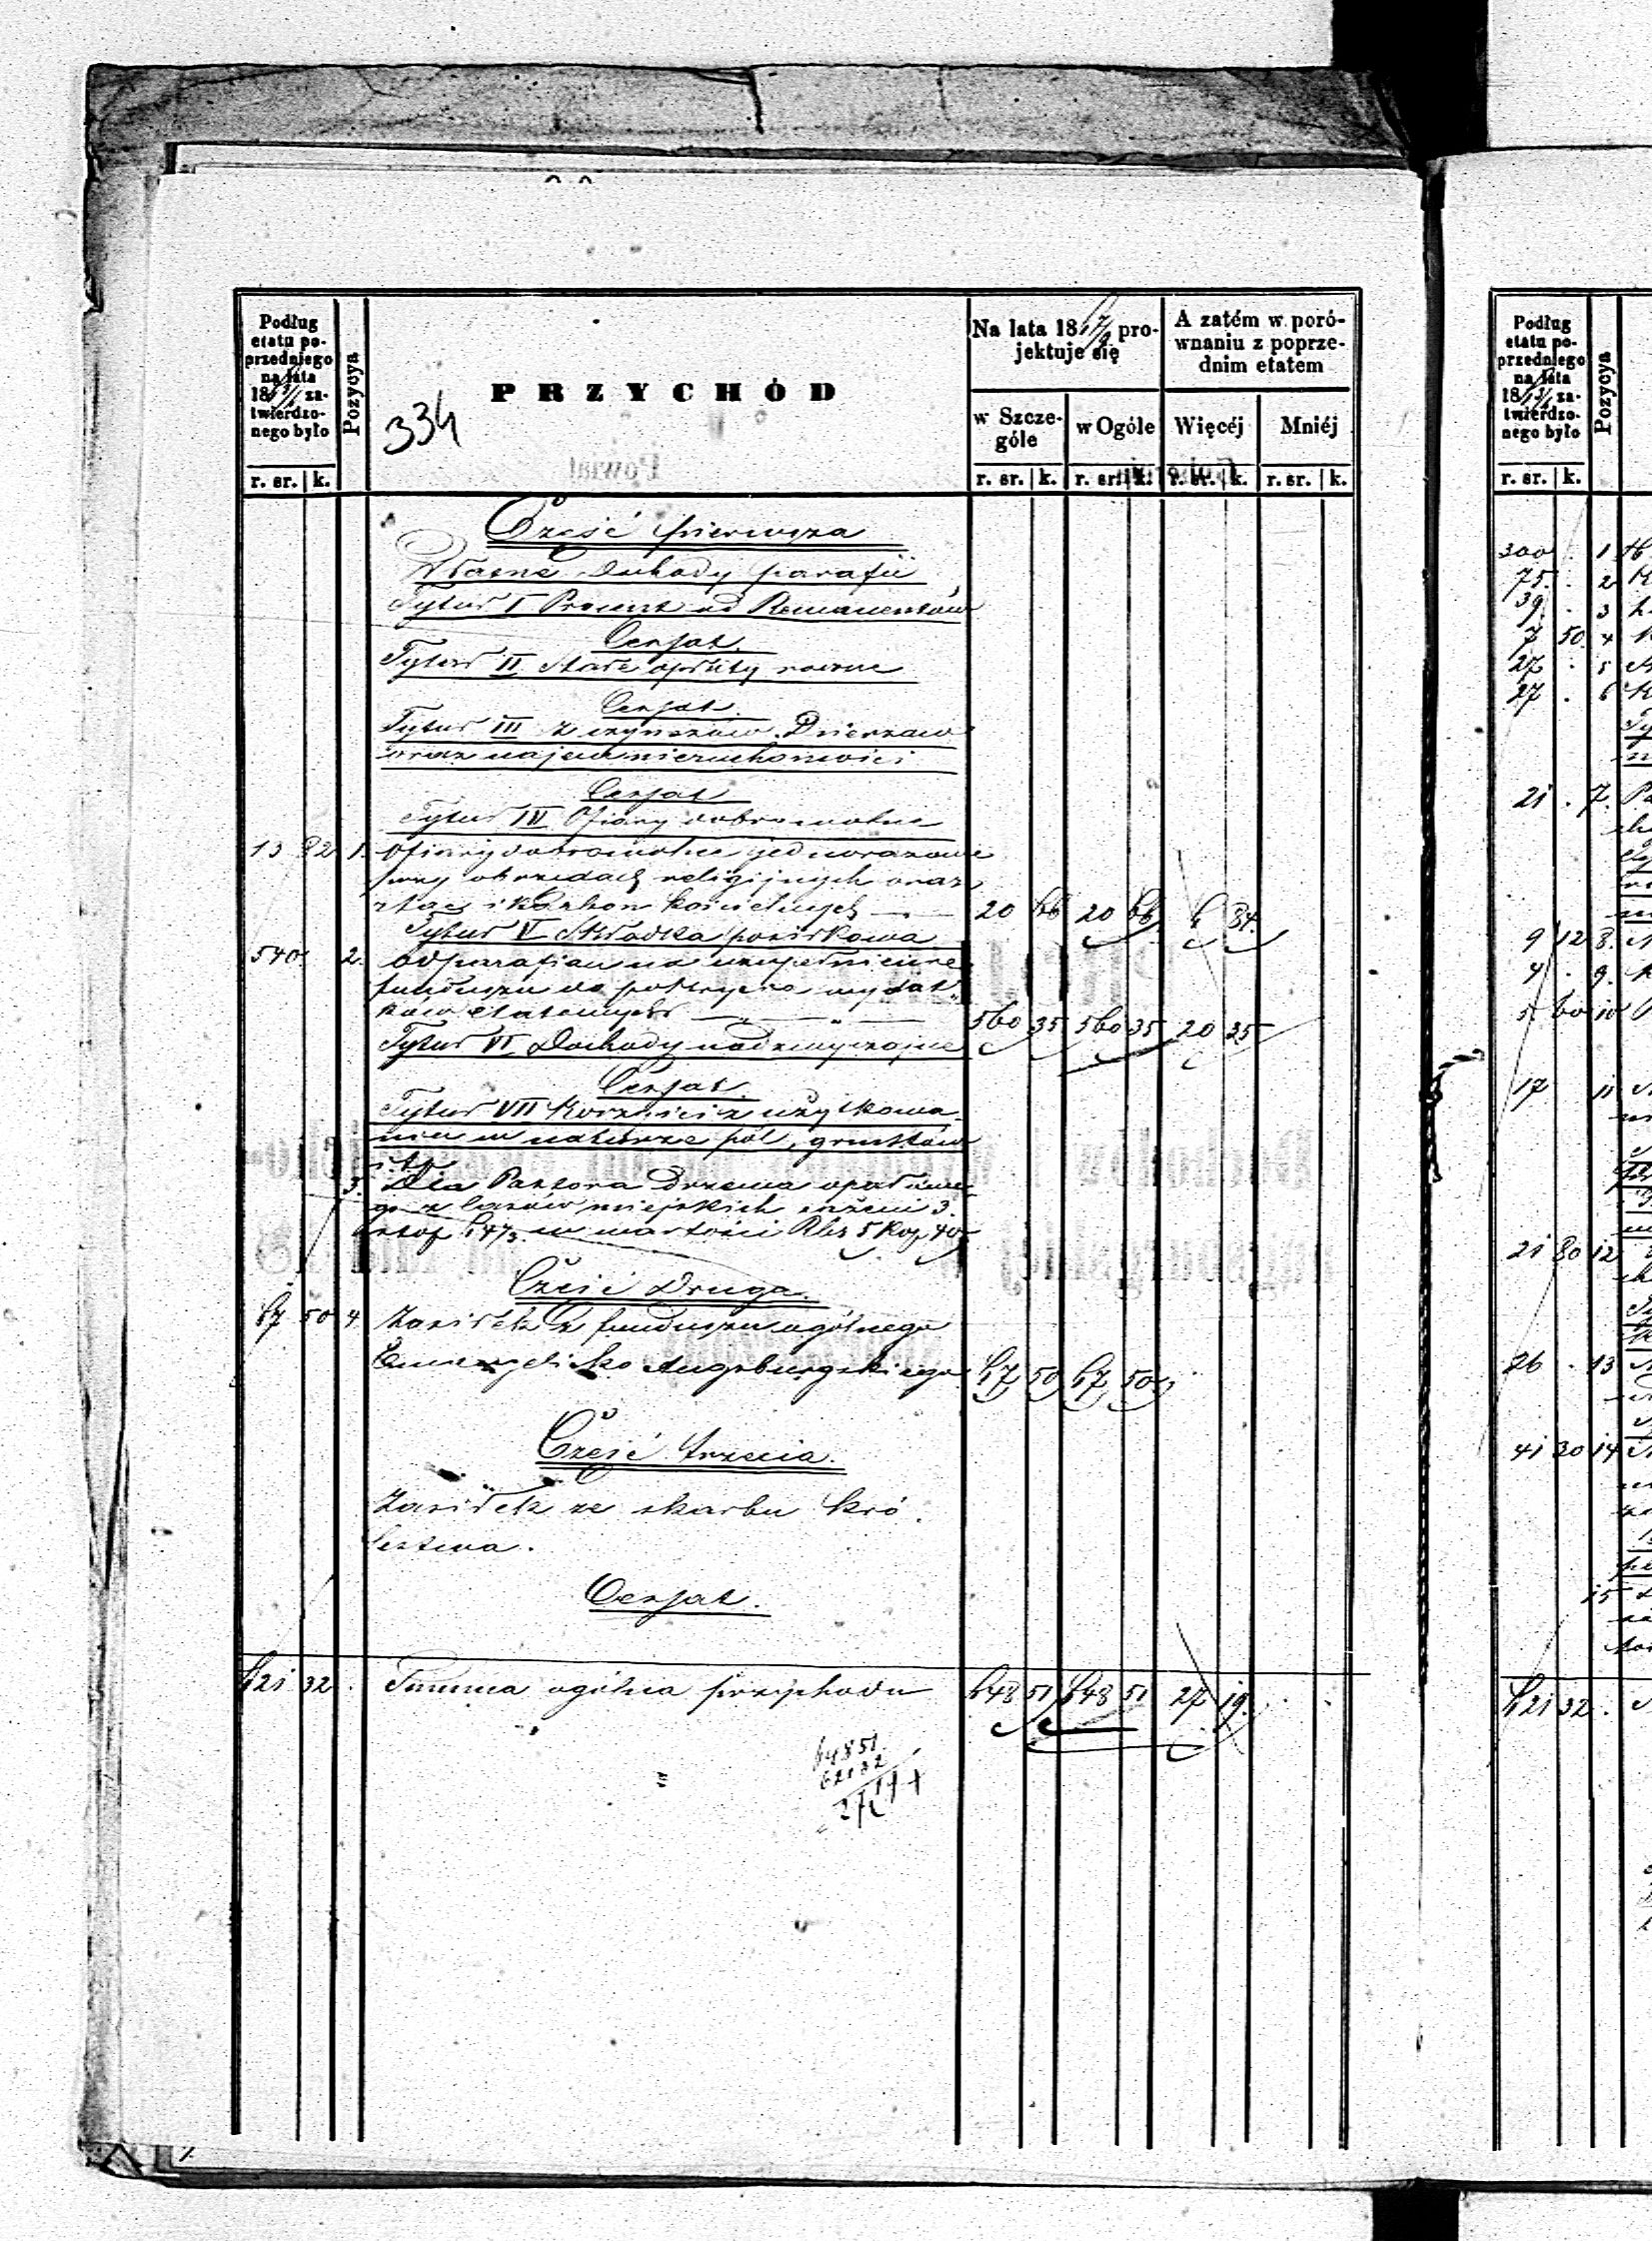 Podług
etatu po-
przedniego
na lata
18 za-
twierdzo-
nego było
Pozycya
PRZYCHÓD
334
Na lata 18 pro-
jektuje się
A zatém w poró-
wnaniu z poprze-
dnim etatem
w Szcze-
góle
w Ogóle
Więcéj
Mniéj
r. sr. k.
r. sr. k. r. sr. k. r. sr. k. r. sr. k.
Powiat
Część pierwsza
Własne dochody parafii
Tytuł I Procent od Remanentów
Cessat.
Tytuł II Stałe opłaty roczne
Cessat.
Tytuł III z czynszów Dzierzaw
oraz najem nieruchomości
Cessat
Tytuł IV Ofiary dobrowolne
13 82 1. Ofiary dobrowolne jednorazowe
przy obrzedach religijnych oraz
z tac i skarbon kościelnych 20 66 20 66 6 84.
Tytuł V Składka posiłkowa
540. 2. od parafian na uzupełnienie
funduszu do pokrycia wydat-
ków etatowych 560 35 560 35 20 35
Tytuł VI Dochody nadzwyczajne
Cessat.
Tytuł VII Korzyści z użytkowa-
nia w naturze pól, gruntów
i t.p.
3. Dla Pastora Drzewa opałowe-
go z lasów miejskich sążeni 3.
stóp 64/3 w wartości Rbs 5 kop 40
Część Druga.
67 50 4 Zasiłek z funduszu ogólnego
Ewangelicko Augsburgskiego 67 50 67 50
Część trzecia.
Zasiłek ze skarbu Kró-
lestwa.
Cessat.
621 32 . Summa ogólna przychodu 648 51 648 51 27 19.
648 51
621 32
27 19
Podług
etatu po-
przedniego
na lata
18 za-
twierdzo-
nego było
Pozycya
r. sr. k.
300 . 1
75. . 2
39. . 3
7 50. 4
27 . 5
27 . 6
21 . 7.
9 12 8.
4 . 9.
5 60 10
17 11
21 80 12
26 . 13
41 30 14
15
621 32 .